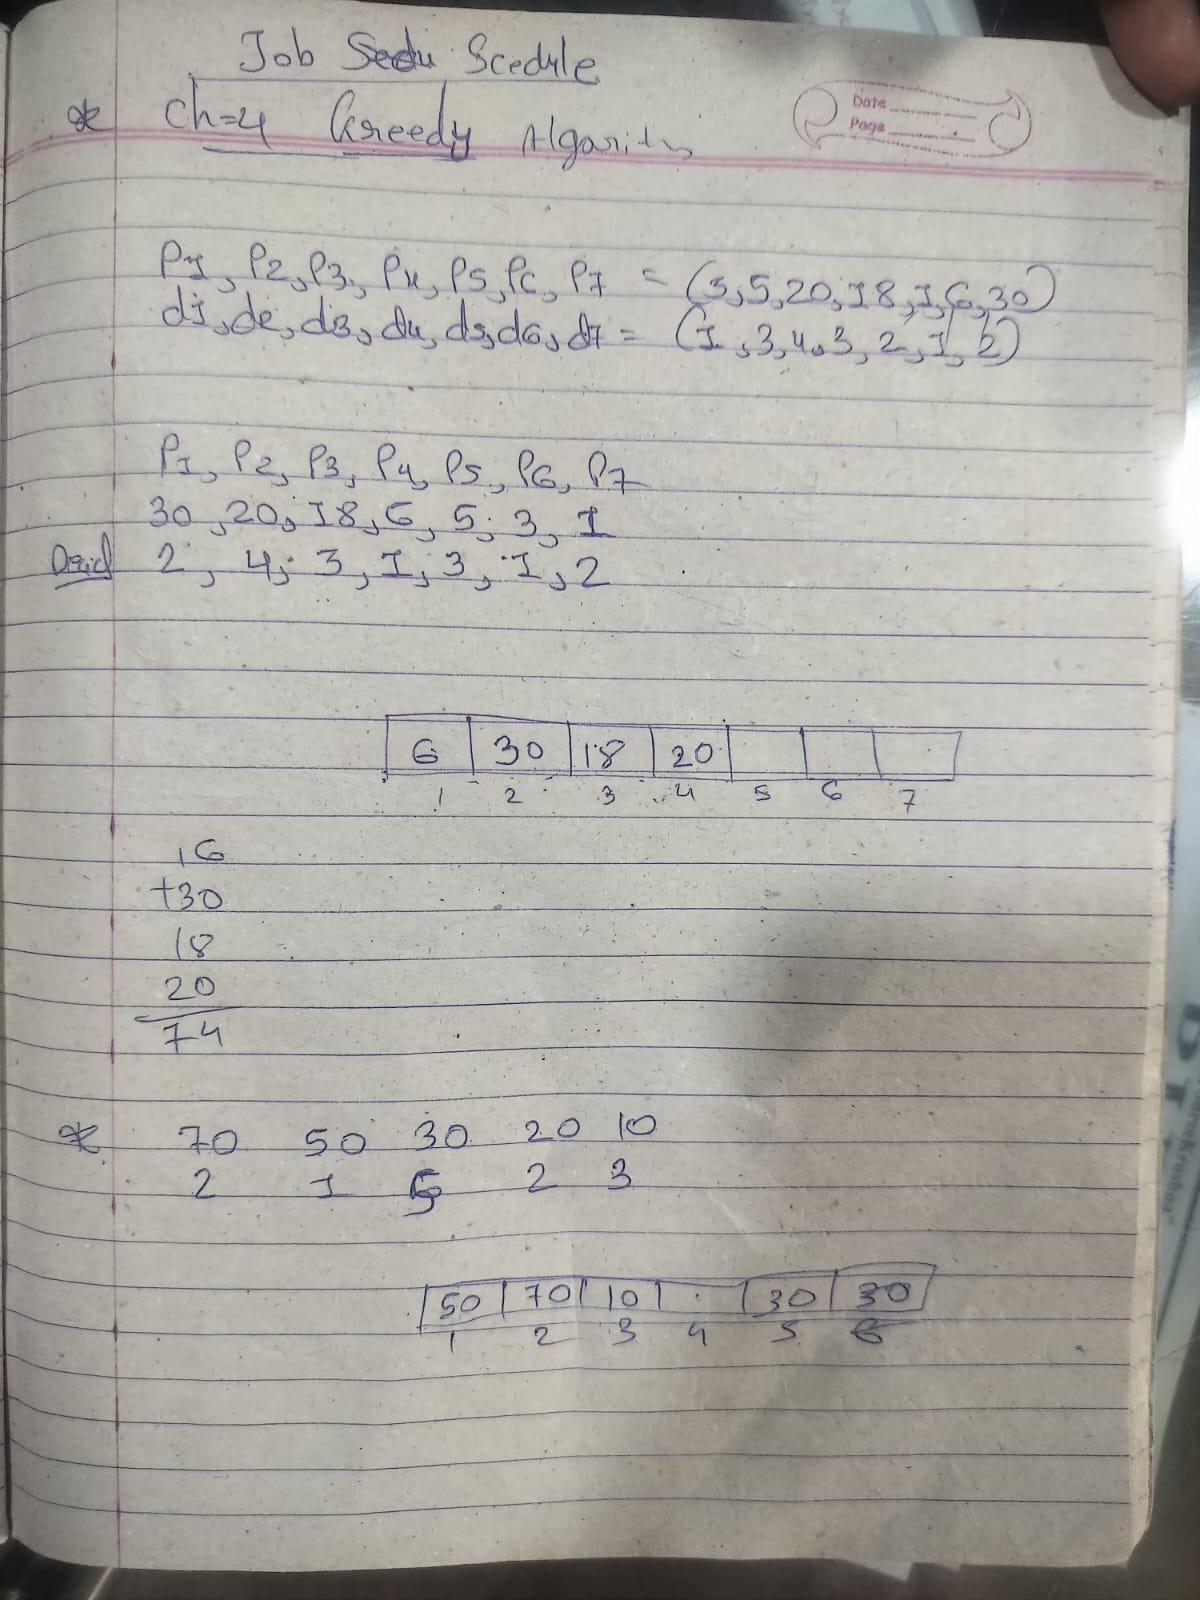 Job Scedule
Ch=4 Greedy Algorith
Date
Page
P1, P2, P3, P4, P5, P6, P7 = (3, 5, 20, 18, 1, 6, 30)
d1, d2, d3, d4, d5, d6, d7 = (1, 3, 4, 3, 2, 1, 2)
P1, P2, P3, P4, P5, P6, P7
30, 20, 18, 6, 5, 3, 1
2, 4, 3, 1, 3, 1, 2
6 30 18 20
1 2 3 4 5 6 7
6
+30
18
20
74
70 50 30 20 10
2 1 5 2 3
50 70 10 30 30
1 2 3 4 5 6